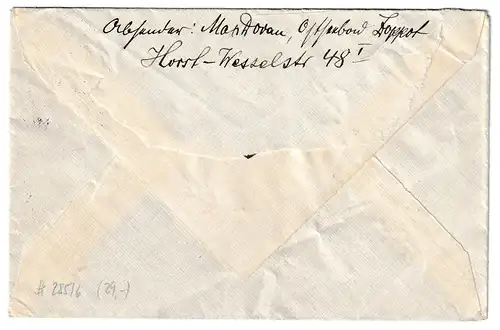 Absender: MarDovan, Ostseebad Zoppot
Horst-Wesselstr 48 I
# 285/6 (29,-)